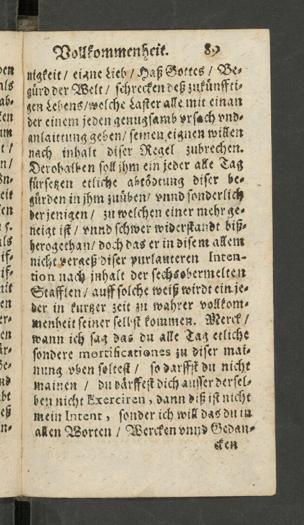 Vollkommenheit. 89
nigkeit / eigne Lieb / Haß Gottes / Be-
gürd der Welt / schrecken deß zukünffti-
gen Lebens / welche Laster alle mit einan
der einem jeden genugsamb vrsach vnd-
anlaittung geben / seinen eignen willen
nach inhalt diser Regel zubrechen.
Derohalben soll ihm ein jeder alle Tag
fürsetzen etliche abtödtung diser be-
gürden in jhm zuüben / vnnd sonderlich
derjenigen / zu welchen einer mehr ge-
neigt ist / vnnd schwer widerstandt biß-
herogethan / doch das er in disem allem
nicht vergeß diser purlauteren Inten-
tion nach jnhalt der sechsobermelten
Stafflen / auff solche weiß wirdt ein je-
der in kurtzer zeit zu wahrer vollkom-
menheit seiner selbst kommen. Merck /
wann ich sag das du alle Tag etliche
sondere mortificationes zu diser mai-
nung vben soltest / so darffst du nicht
mainen / du därffest dich ausser dersel-
ben nicht Exerciren, dann diß ist nicht
mein Intent, sonder ich will das du in
allen Worten / Wercken vnnd Gedan-
cken